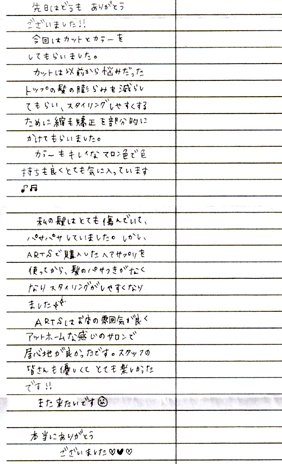 先日はどうも ありがとう
ございました!!
今回はカットとカラーを
してもらいました。
カットは以前から悩みだった
トップの髪の膨らみを減らし
てもらい、スタイリングしやすくする
ために縮毛矯正を部分的に
かけてもらいました。
カラーもキレイなマロン色で色
持ちも良くとても気に入っています
♪♬
私の髪はとても傷んでいて、
パサパサしていました。しかし、
ARTSで購入したヘアサプリを
使ってから、髪のパサつきがなく
なりスタイリングがしやすくなり
ました
ARTSはお店の雰囲気が良く
アットホームな感じのサロンで
居心地が良かったです。スタッフの
皆さんも優しくて とても楽しかった
です!!
また来たいです☺
本当にありがとう
ございました♡♥♡